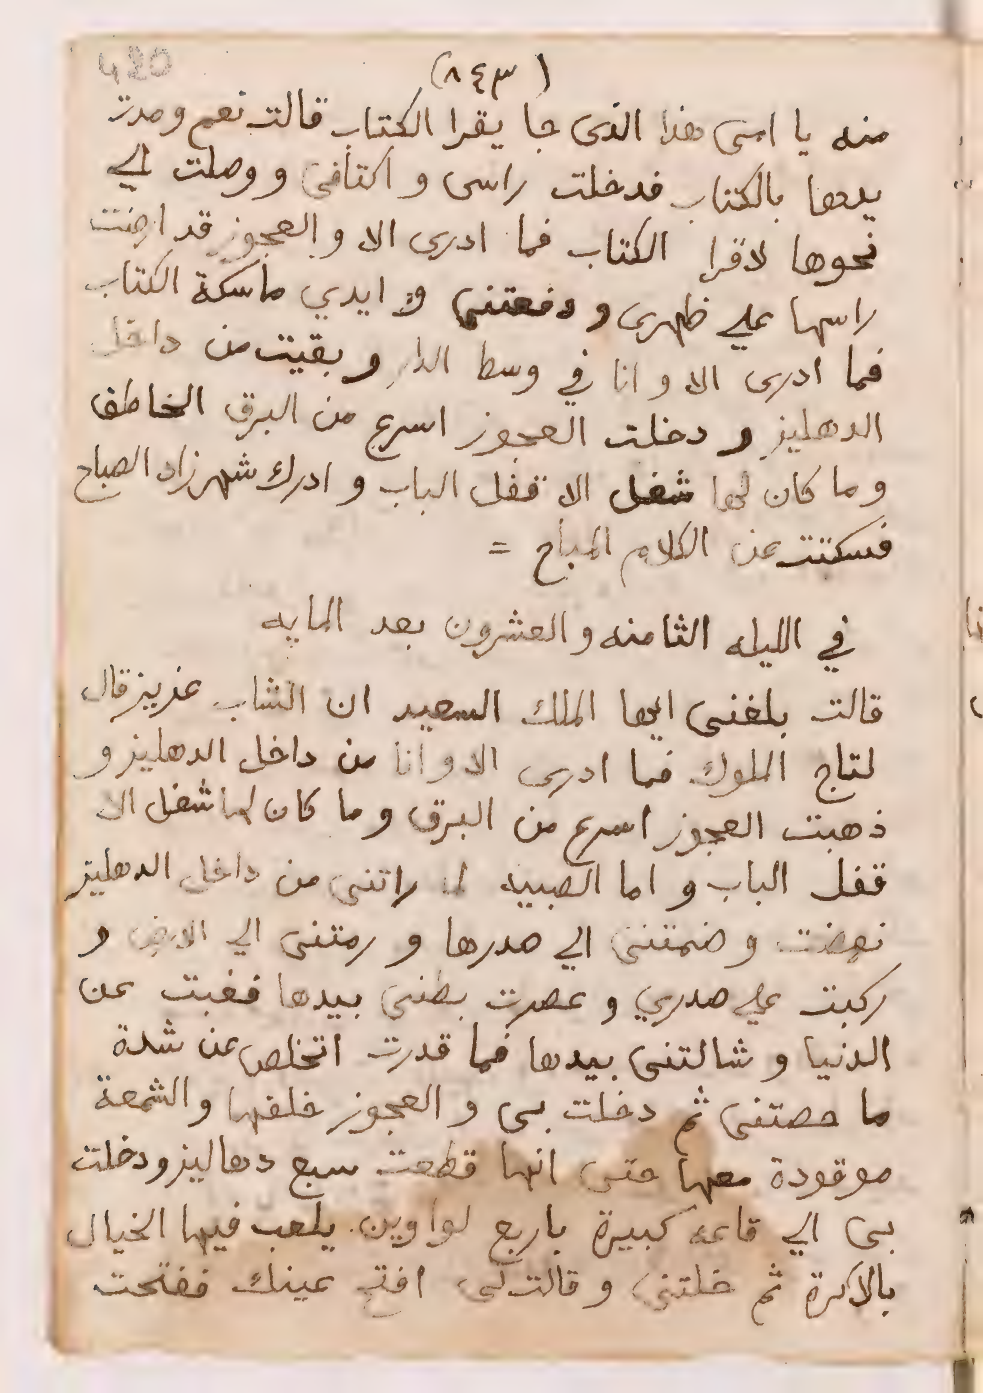 420
(٨٤٣)
منه يا امى هذا الذى جا يقرا الكتاب قالت نعم ومدت
يدها بالكتاب فدخلت راسى و اكتافى و وصلت الي
نحوها لاقرا الكتاب فما ادرى الا و العجوز قد ارخت
راسها علي ظهرى و دفعتنى و ايدي ماسكة الكتاب
فما ادرى الا و انا في وسط الدار و بقيت من داخل
الدهليز و دخلت العجوز اسرع من البرق الخاطف
و ما كان لها شغل الا قفل الباب و ادرك شهرزاد الصباح
فسكتت عن الكلام المباح =
في الليله الثامنه و العشرون بعد المايه
قالت بلغنى ايها الملك السعيد ان الشاب عزيز قال
لتاج الملوك فما ادرى الا و انا من داخل الدهليز و
ذهبت العجوز اسرع من البرق و ما كان لها شغل الا
قفل الباب و اما الصبيه لما راتنى من داخل الدهليز
نهضت و ضمتنى الي صدرها و رمتنى الي الارض و
ركبت علي صدري و عصرت بطنى بيدها فغبت عن
الدنيا و شالتنى بيدها فما قدرت اتخلص عن شدة
ما حصتنى ثم دخلت بى و العجوز خلفها و الشمعة
موقودة معها حتى انها قطعت سبع دهاليز ودخلت
بى الي قاعه كبيرة باربع لواوين يلعب فيها الخيال
بالاكرة ثم خلتنى و قالت لى افتح عينك ففتحت